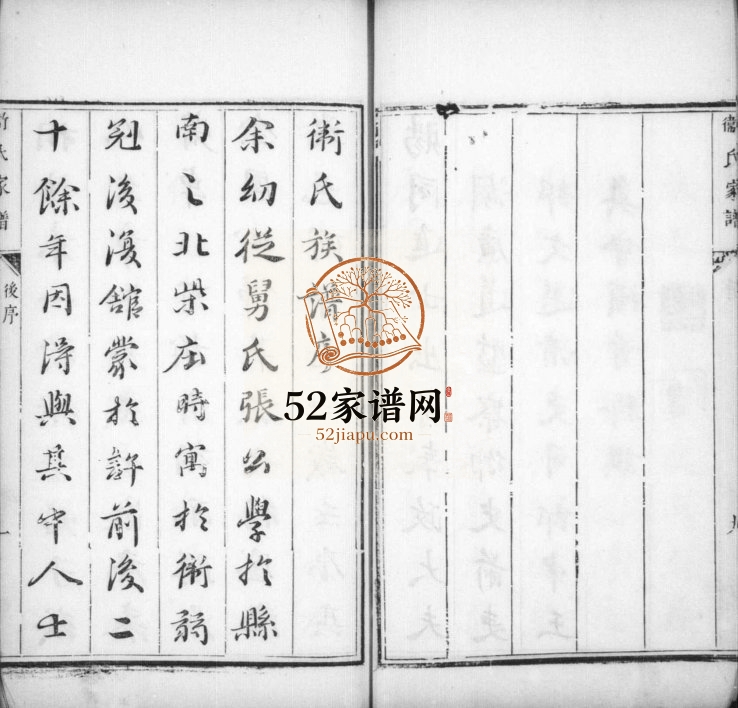 衛氏家譜
衛氏族譜序
余幼從舅氏張公學於縣
南之北柴庄時寓於衛弱
冠後復館蒙於許前後二
十餘年因得與其中人士
衛氏家譜
後序
一
52家谱网
52jiapu.com